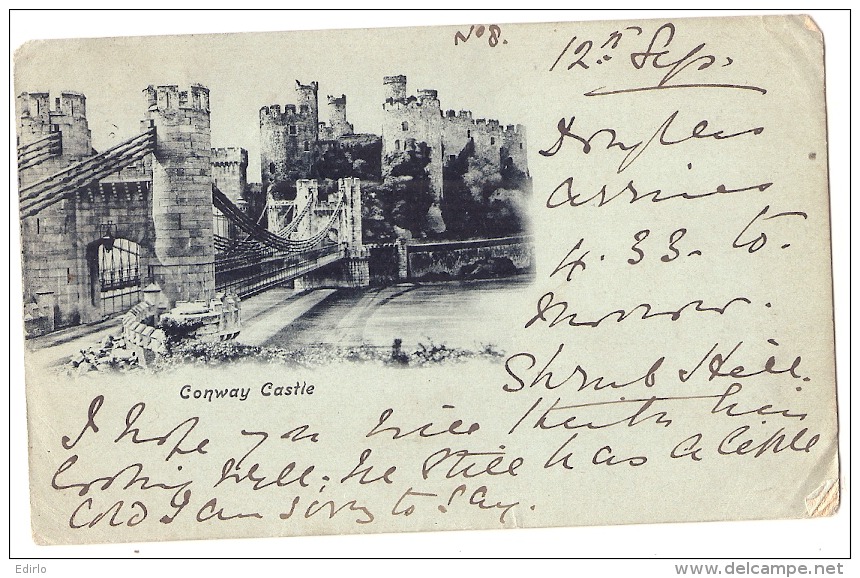 No 8.
12th Sep.
Douglas
arrives
4.33. to.
morrow.
Shrub Hill.
Conway Castle
I hope you will think him
looking well; he still has a little
cold I am sorry to say.
Edirlo
www.delcampe.net